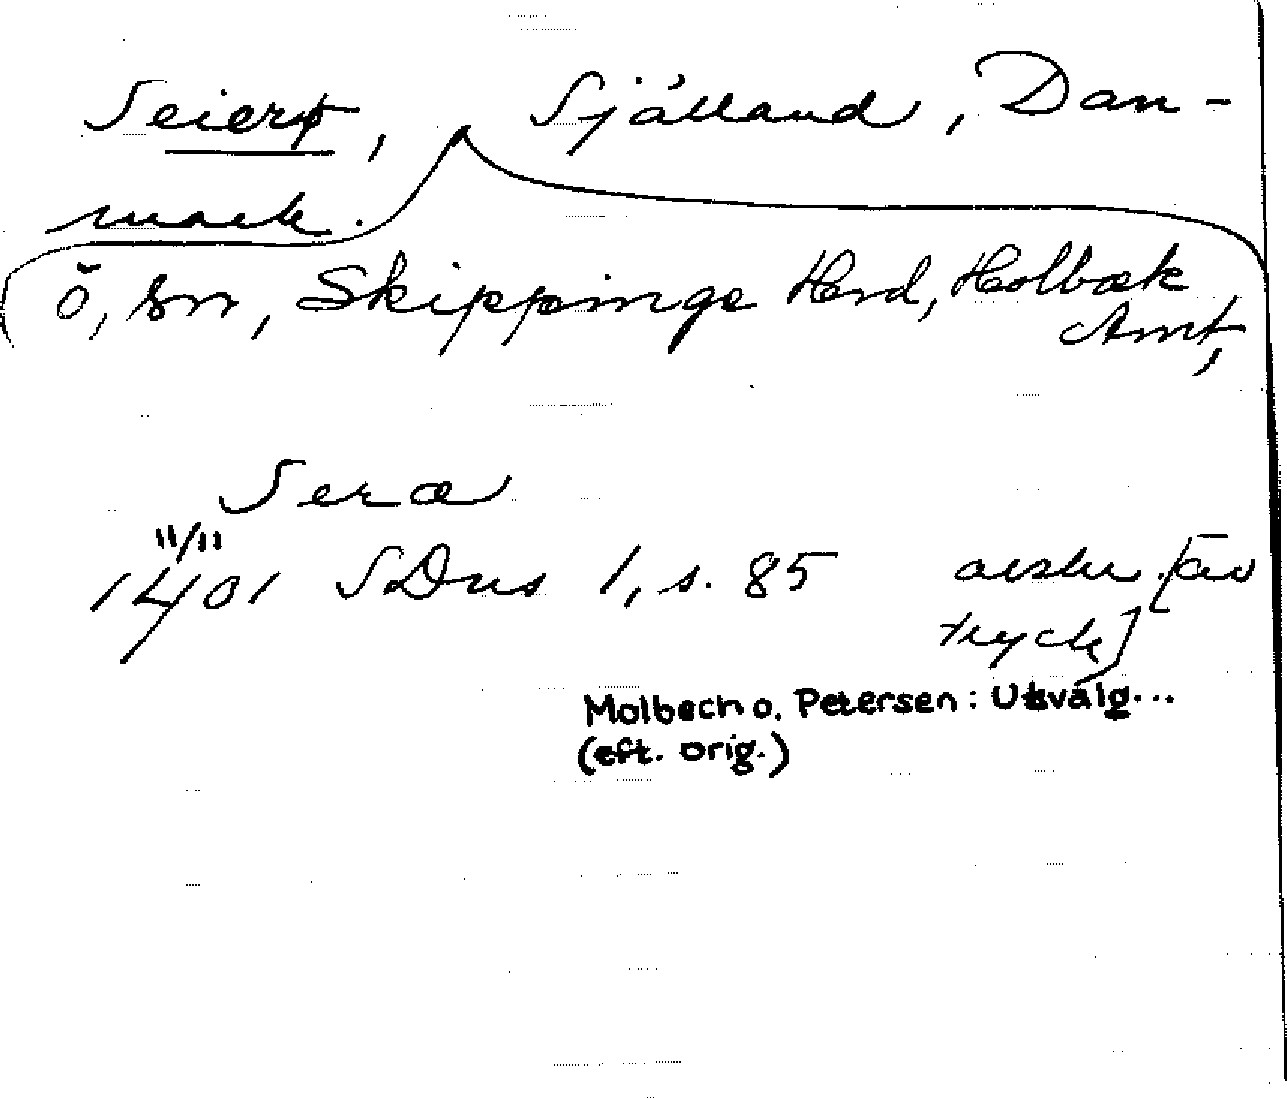 Seierø, Själland, Dan-
mark.
ö, sn, Skippinge Herd, Holbæk
Amt,
Seræ
11/11
1401 SDns 1, s. 85 avskr. [av
tryck]
Molbech o. Petersen: Utvalg...
(eft. orig.)